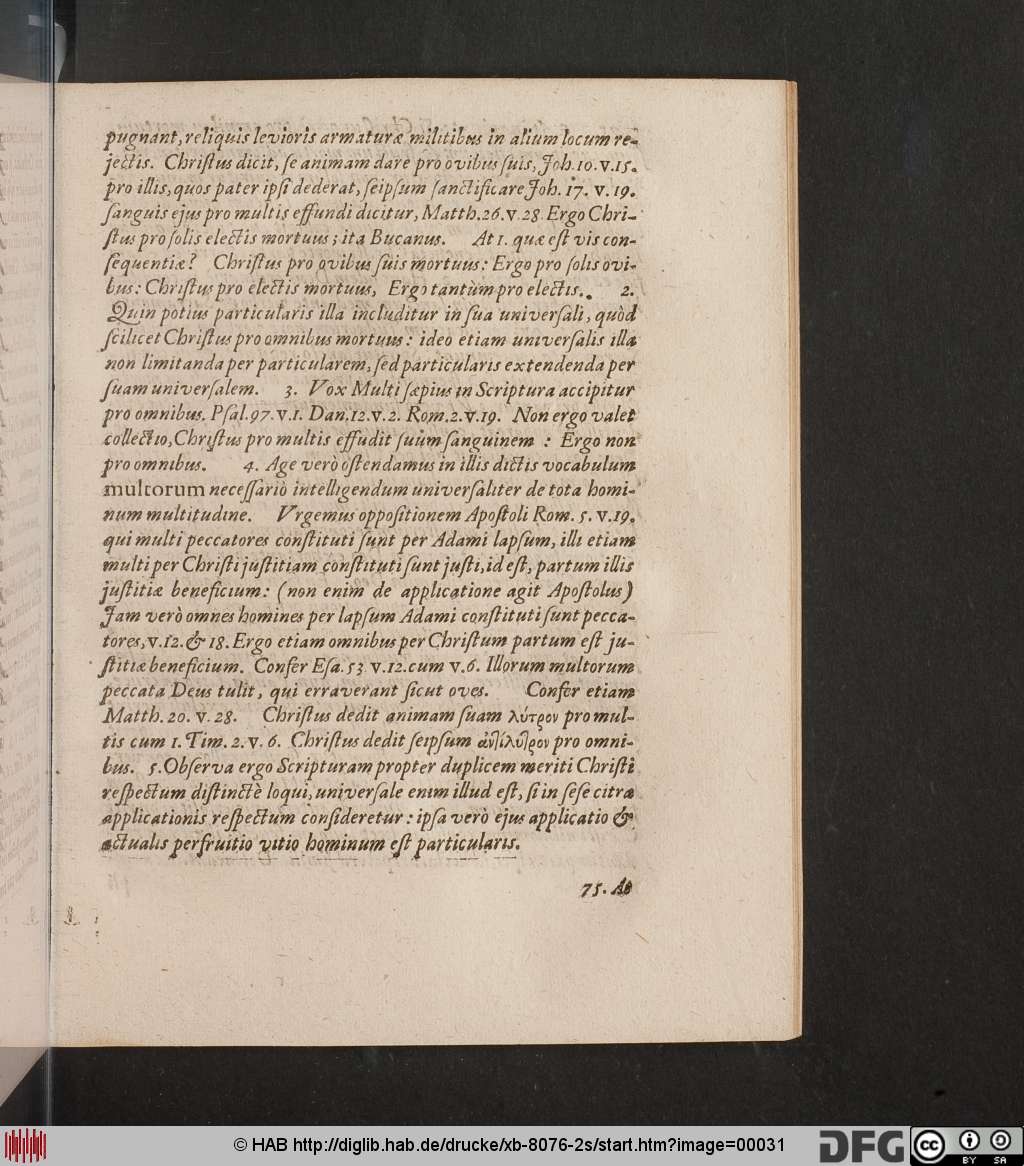 pugnant, reliquis levioris armaturæ militibus in alium locum re-
jectis. Christus dicit, se animam dare pro ovibus suis, Joh. 10. v. 15.
pro illis, quos pater ipsi dederat, seipsum sanctificare Joh. 17. v. 19.
sanguis ejus pro multis effundi dicitur, Matth. 26. v 28 Ergo Chri-
stus pro solis electis mortuus; ita Bucanus. At 1. quæ est vis con-
sequentiæ? Christus pro ovibus suis mortuus: Ergo pro solis ovi-
bus: Christus pro electis mortuus, Ergo tantùm pro electis. 2.
Quin potius particularis illa includitur in sua universali, quòd
scilicet Christus pro omnibus mortuus: ideo etiam universalis illa
non limitanda per particularem, sed particularis extendenda per
suam universalem. 3. Vox Multi sæpius in Scriptura accipitur
pro omnibus. Psal. 97. v. 1. Dan. 12. v. 2. Rom. 2. v. 19. Non ergo valet
collectio, Christus pro multis effudit suum sanguinem : Ergo non
pro omnibus. 4. Age verò ostendamus in illis dictis vocabulum
multorum necessariò intelligendum universaliter de tota homi-
num multitudine. Vrgemus oppositionem Apostoli Rom. 5. v. 19.
qui multi peccatores constituti sunt per Adami lapsum, illi etiam
multi per Christi justitiam constituti sunt justi, id est, partum illis
justitiæ beneficium: (non enim de applicatione agit Apostolus)
Jam verò omnes homines per lapsum Adami constituti sunt pecca-
tores, v. 12. & 18. Ergo etiam omnibus per Christum partum est ju-
stitiæ beneficium. Confer Esa. 53 v. 12. cum v. 6. Illorum multorum
peccata Deus tulit, qui erraverant sicut oves. Confer etiam
Matth. 20. v. 28. Christus dedit animam suam λύτρον pro mul-
tis cum 1. Tim. 2. v. 6. Christus dedit seipsum ἀντίλυτρον pro omni-
bus. 5. Observa ergo Scripturam propter duplicem meriti Christi
respectum distinctè loqui, universale enim illud est, si in sese citra
applicationis respectum consideretur: ipsa verò ejus applicatio &
actualis perfruitio vitio hominum est particularis.
75. Ab
© HAB http://diglib.hab.de/drucke/xb-8076-2s/start.htm?image=00031
DFG
cc
BY SA